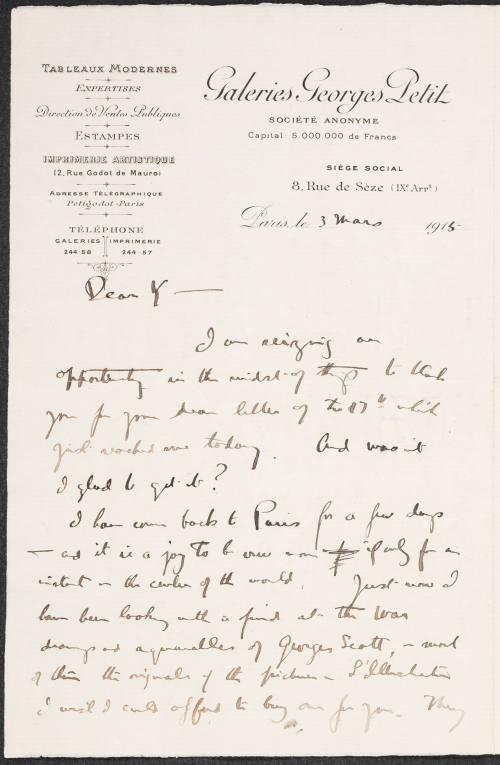 TABLEAUX MODERNES
EXPERTISES
Direction de Ventes Publiques
ESTAMPES
IMPRIMERIE ARTISTIQUE
12, Rue Godot de Mauroi
ADRESSE TÉLÉGRAPHIQUE
Petigodot-Paris
TÉLÉPHONE
GALERIES IMPRIMERIE
244-58 244-57
Galeries Georges Petit
SOCIÉTÉ ANONYME
Capital: 5.000.000 de Francs
SIÈGE SOCIAL
8, Rue de Sèze (IXe Arrt)
Paris, le 3 Mars 1915
Dear K —
I am seizing an
opportunity in the midst of things to thank
you for your dear letter of the 17th which
just reached me today. And was it
I glad to get it?
I have come back to Paris for a few days
— and it is a joy to be once more if only for an
instant in the center of the world. Just now I
have been looking with a friend at the War
drawings and aquarelles of Georges Scott, — most
of them the originals of the pictures in L'Illustration
I wish I could afford to buy one for you. They